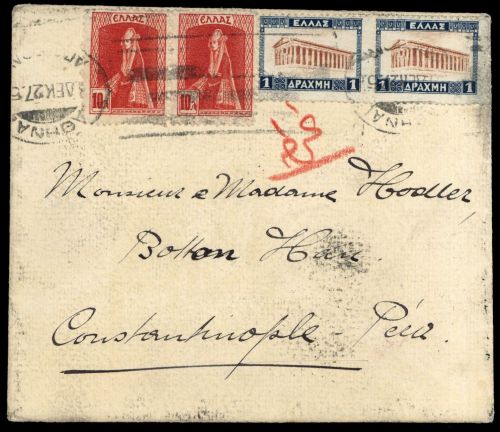 ΕΛΛΑΣ ΕΛΛΑΣ ΕΛΛΑΣ ΕΛΛΑΣ
10 10 1 ΔΡΑΧΜΗ 1 1 ΔΡΑΧΜΗ 1
ΔΕΚ 27
ΑΘΗΝΑΙ
Monsieur e Madame Hodler,
Botton Han
Constantinople - Péra